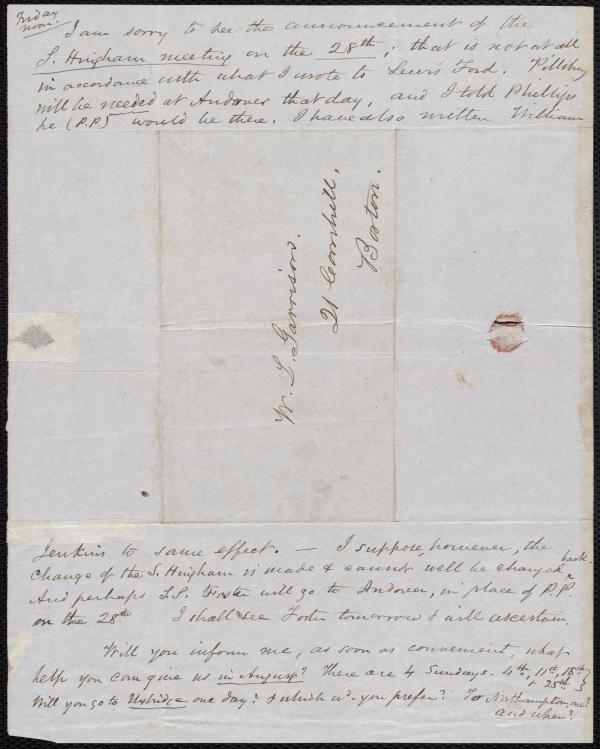 Friday
noon.
I am sorry to see the announcement of the
S. Hingham meeting on the 28th; that is not at all
in accordance with what I wrote to Lewis Ford. Pillsbury
will be needed at Andover that day, and I told Phillips
he (P.P) would be there. I have also written William
W. L. Garrison.
21 Cornhill,
Boston.
Jenkins to same effect. — I suppose, however, the
change of the S. Hingham is made & cannot well be changed back.
And perhaps S.S. Foster will go to Andover, in place of P.P.
on the 28th I shall see Foster tomorrow & will ascertain.
Will you inform me, as soon as convenient, what
help you can give us in August? There are 4 Sundays - 4th, 11th, 18th
& 25th.
Will you go to Uxbridge one day? & which wd. you prefer? To Northampton, one?
and when?